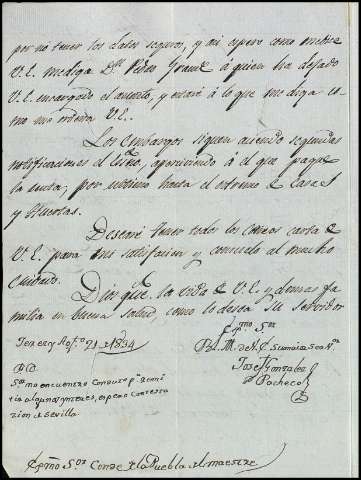 por no tener los datos seguros, y asi espero como me dice
V.E. me diga Dn. Pedro á quien ha dejado
V.E. encargado el asunto, y estaré á lo que me diga co
mo me ordena V.E.
Los embargos siguen aciendo segundas
notificaciones el aperciviendo á el que pague
la renta, por ultimo hasta el estremo de Casas
y Huertas.
Desearé tener todos los correos carta de
V.E. para mi satisfacion y consuelo al mucho
cuidado.
Dios gue. la vida de V.E. y demas fa
milia en buena salud, como lo desea su servidor
Jerez y Agto. 21 de 1834
Exmo Sor
B.L.M. de V.E. Su mas
Jose Gonzalez
Pacheco
PD
Sor. no encuentro conducto pa. remi
tir algunos espero contesta
zion de Sevilla
Exmo Sor Conde de la Puebla del Maestre